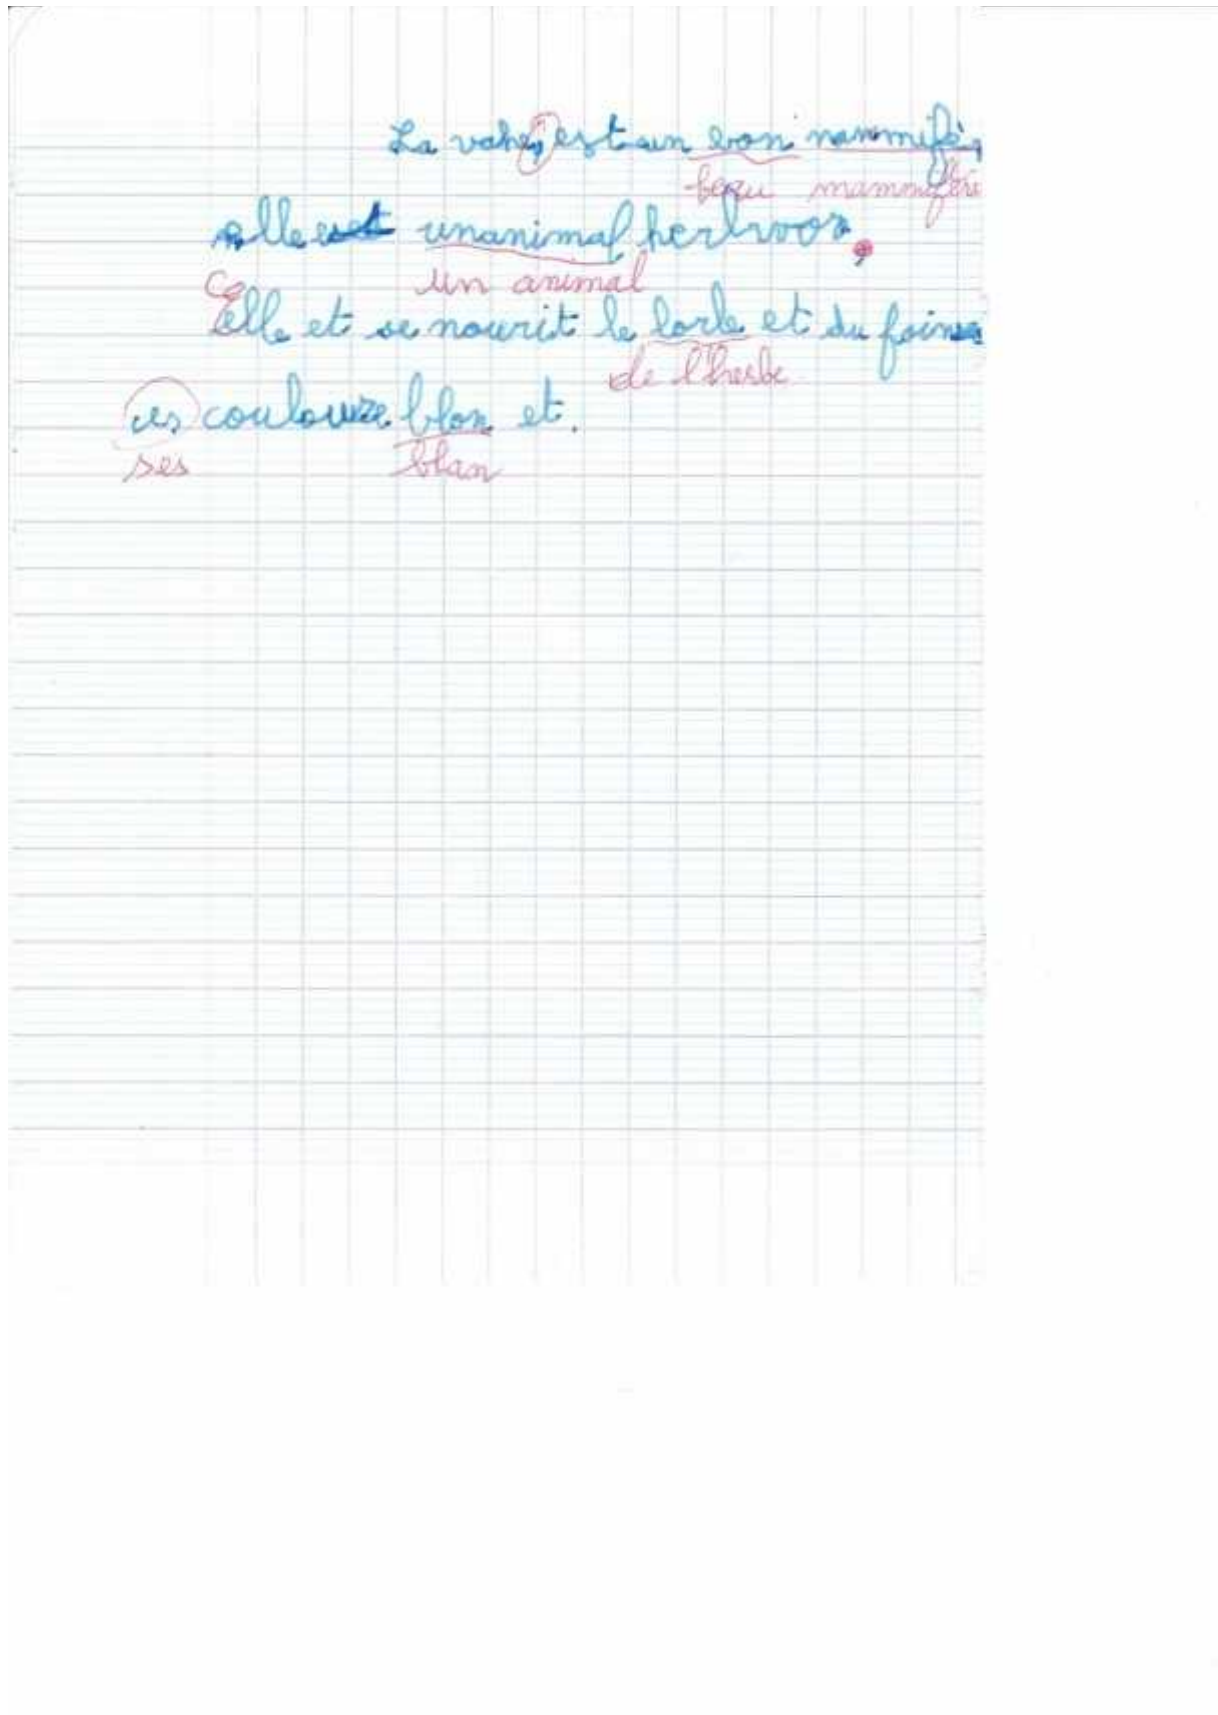 La vahe, est un bon nammifè,
beau mammifère
elle est unanimal herbvoor.
un animal
Elle et se nourit le lorle et du foin
de l'herbe
ces coulouze blon et.
ses blan